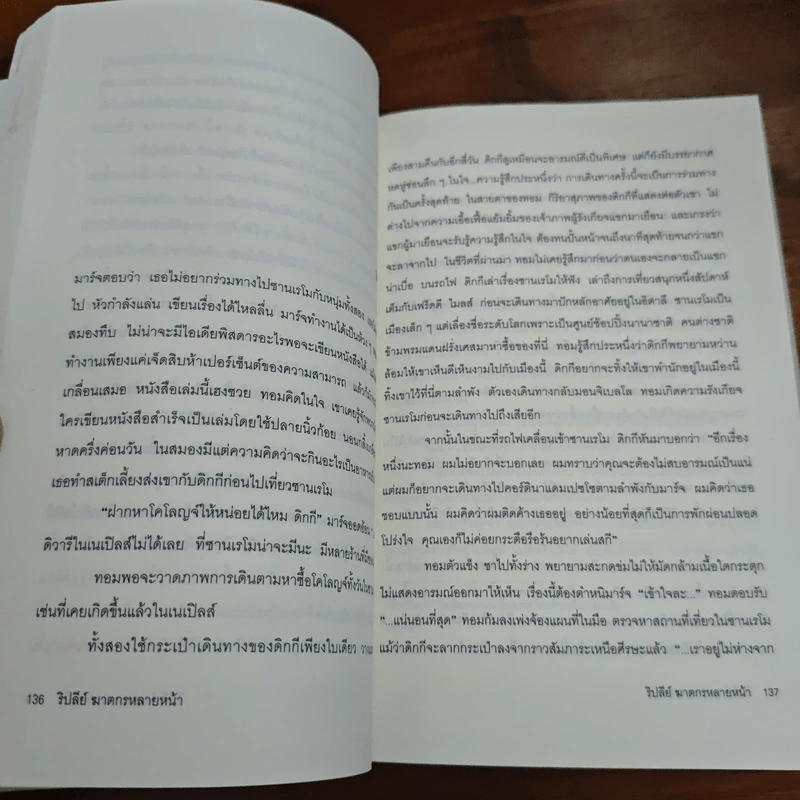 มาร์จตอบว่า เธอไม่อยากร่วมทางไปซานเรโมกับหนุ่มทั้งสอง
ไป หัวกำลังแล่น เขียนเรื่องได้ไหลลื่น มาร์จทำงานได้เป็นห้วง ๆ
สมองทึบ ไม่น่าจะมีไอเดียพิสดารอะไรพอจะเขียนหนังสือได้
ทำงานเพียงแค่เจ็ดสิบห้าเปอร์เซ็นต์ของความสามารถ
เกลื่อนเสมอ หนังสือเล่มนี้เฮงซวย ทอมคิดในใจ เขาเคยรู้จัก
ใครเขียนหนังสือสำเร็จเป็นเล่มโดยใช้ปลายนิ้วก้อย
หาดครึ่งค่อนวัน ในสมองมีแต่ความคิดว่าจะกินอะไรเป็นอาหาร
เธอทำสเต็กเลี้ยงส่งเขากับดิกกีก่อนไปเที่ยวซานเรโม
“ฝากหาโคโลญจ์ให้หน่อยได้ไหม ดิกกี” มาร์จออดอ้อน
ดิวารีในเนเปิลส์ไม่ได้เลย ที่ซานเรโมน่าจะมีนะ มีหลายร้าน
ทอมพอจะวาดภาพการเดินตามหาซื้อโคโลญจ์ทั้งวัน
เช่นที่เคยเกิดขึ้นแล้วในเนเปิลส์
ทั้งสองใช้กระเป๋าเดินทางของดิกกีเพียงใบเดียว
136 ริปลีย์ ฆาตกรหลายหน้า
เพียงสามคืนกับอีกสี่วัน ดิกกีดูเหมือนจะอารมณ์ดีเป็นพิเศษ แต่ก็ยังมีบรรยากาศ
หดหู่ซ่อนลึก ๆ ในใจ...ความรู้สึกประหนึ่งว่า การเดินทางครั้งนี้จะเป็นการร่วมทาง
กันเป็นครั้งสุดท้าย ในสายตาของทอม กิริยาสุภาพของดิกกีที่แสดงต่อตัวเขา ไม่
ต่างไปจากความเอื้อเฟื้อแย้มยิ้มของเจ้าภาพผู้รังเกียจแขกมาเยือน และเกรงว่า
แขกผู้มาเยือนจะรับรู้ความรู้สึกในใจ ต้องทนปั้นหน้าจนถึงนาทีสุดท้ายจนกว่าแขก
จะลาจากไป ในชีวิตที่ผ่านมา ทอมไม่เคยรู้สึกมาก่อนว่าตนเองจะกลายเป็นแขก
น่าเบื่อ บนรถไฟ ดิกกีเล่าเรื่องซานเรโมให้ฟัง เล่าถึงการเที่ยวสนุกหนึ่งสัปดาห์
เต็มกับเฟร็ดดี ไมลส์ ก่อนจะเดินทางมาปักหลักอาศัยอยู่ในอิตาลี ซานเรโมเป็น
เมืองเล็ก ๆ แต่เลื่องชื่อระดับโลกเพราะเป็นศูนย์ช้อปปิ้งนานาชาติ คนต่างชาติ
ข้ามพรมแดนฝรั่งเศสมาหาซื้อของที่นี่ ทอมรู้สึกประหนึ่งว่าดิกกีพยายามหว่าน
ล้อมให้เขาเห็นดีเห็นงามไปกับเมืองนี้ ดิกกีอยากจะทิ้งให้เขาพำนักอยู่ในเมืองนี้
ทิ้งเขาไว้ที่นี่ตามลำพัง ตัวเองเดินทางกลับมอนจิเบลโล ทอมเกิดความรังเกียจ
ซานเรโมก่อนจะเดินทางไปถึงเสียอีก
จากนั้นในขณะที่รถไฟเคลื่อนเข้าซานเรโม ดิกกีหันมาบอกว่า “อีกเรื่อง
หนึ่งนะทอม ผมไม่อยากจะบอกเลย ผมทราบว่าคุณจะต้องไม่สบอารมณ์เป็นแน่
แต่ผมก็อยากจะเดินทางไปคอร์ตินาแดมเปซโซตามลำพังกับมาร์จ ผมคิดว่าเธอ
ชอบแบบนั้น ผมคิดว่าผมติดค้างเธออยู่ อย่างน้อยที่สุดก็เป็นการพักผ่อนปลอด
โปร่งใจ คุณเองก็ไม่ค่อยกระตือรือร้นอยากเล่นสกี”
ทอมตัวแข็ง ชาไปทั้งร่าง พยายามสะกดข่มไม่ให้มัดกล้ามเนื้อใดกระตุก
ไม่แสดงอารมณ์ออกมาให้เห็น เรื่องนี้ต้องตำหนิมาร์จ “เข้าใจละ...” ทอมตอบรับ
“...แน่นอนที่สุด” ทอมก้มลงเพ่งจ้องแผนที่ในมือ ตรวจหาสถานที่เที่ยวในซานเรโม
แม้ว่าดิกกีจะลากกระเป๋าลงจากราวสัมภาระเหนือศีรษะแล้ว “...เราอยู่ไม่ห่างจาก
ริปลีย์ ฆาตกรหลายหน้า 137